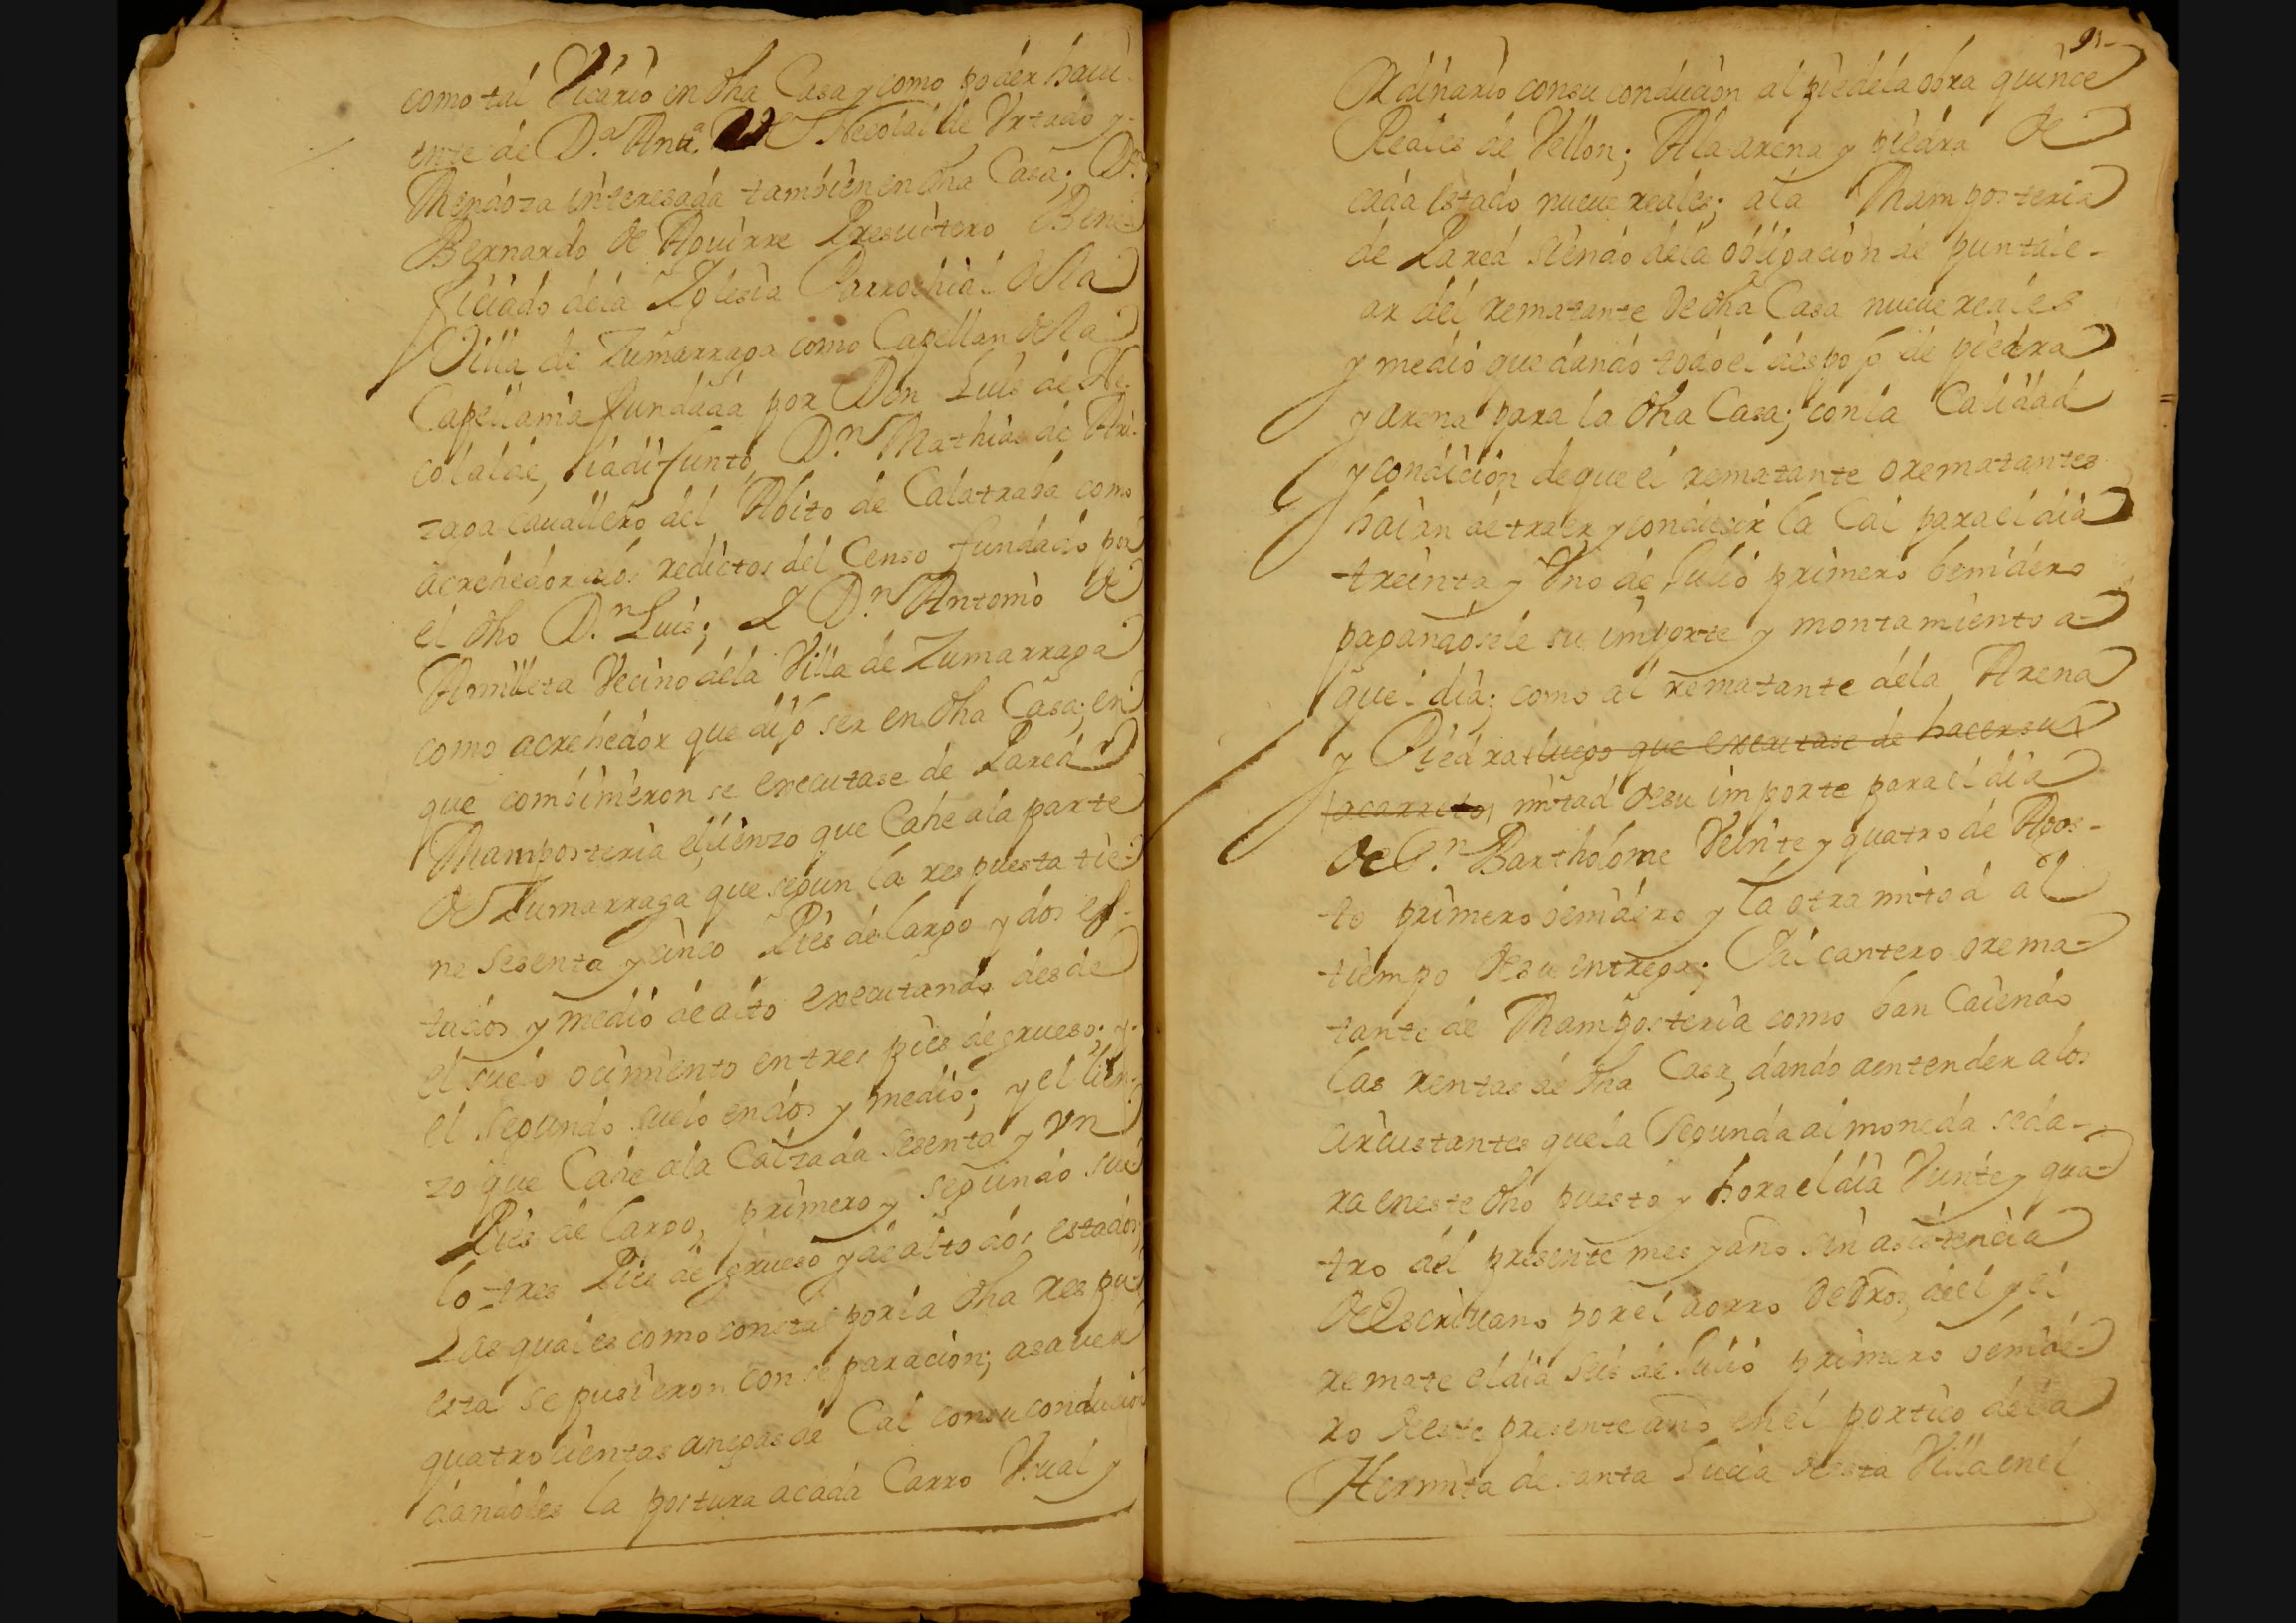 como tal Vicario en dha Casa y como poder havi-
ente de D.ª Ana. de Necolalde Vrtado y
Mendoza interesada tambien en dha Casa; D.n
Bernardo de Aguirre Presuitero Bene-
ficiado dela Iglesia Parrochial dela
Villa de Zumarraga como Capellan dela
Capellania fundada por Don Luis de Ne-
colalde, iadifunto, D.n Mathias de Ari-
zaga cauallero del Abito de Calatraba como
acrehedor alos redictos del Censo fundado por
el dho D.n Luis; I D.n Antonio de
Amilleta Vecino dela Villa de Zumarraga
como acrehedor que dijo ser en dha Casa; en
que combinieron se executase de Pared
Mamposteria el lienzo que Cahe ala parte
de Zumarraga que segun la respuesta tie-
ne sesenta y cinco Pies de largo y dos es-
tados y medio de alto executando desde
el suelo o cimiento en tres pies de grueso; y
el segundo suelo en dos y medio; y el lien-
zo que Cahe ala Calzada sesenta y vn
Pies de largo, primero y segundo sue-
lo tres Pies de grueso y de alto dos estados;
Las quales como consta por la dha respu-
esta se pusieron con separacion; asauer
quatrocientas anegas de Cal con su conducion
dandoles la postura acada Carro Vsual y
91-
Ordinario consu conducion al pie dela obra quince
Reales de Vellon; Ala arena y piedra de
cada estado nueue reales; ala Mamposteria
de Pared siendo dela obligacion de puntale-
ar del rematante de dha Casa nueue reales
y medio quedando todo el despojo de piedra
y arena para la dha Casa; con la Calidad
y condicion de que el rematante o rematantes
haian de traer y conducir la Cal para el dia
treinta y Vno de Julio primero bemidero
pagandosele su importe y montamiento a-
quel dia; como al rematante dela Arena
y Piedra luego que executase de hacer su
acarreto mitad de su importe para el dia
de S.n Bartholome Veinte y quatro de Agos-
to primero bemidero y la otra mitad al
tiempo de su entrega; I al cantero o rema-
tante de Mamposteria como ban Caiendo
las rentas de dha Casa, dando aentender alos
circustantes que la segunda almoneda se da-
ra eneste dho puesto y hora el dia Veinte y qua-
tro del presente mes y año sin asistencia
de Escriuano por el aorro de dros de el y el
remate el dia seis de Julio primero bemide-
ro de este presente año en el portico dela
Hermita de santa Lucia desta Villa en el